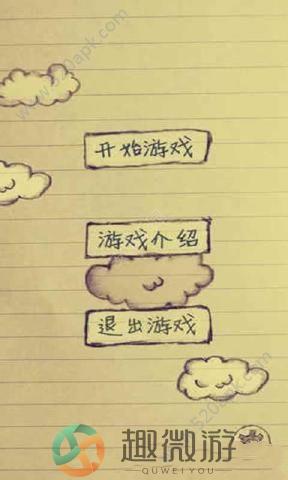 开始游戏
游戏介绍
退出游戏
趣微游
QUWEIYOU